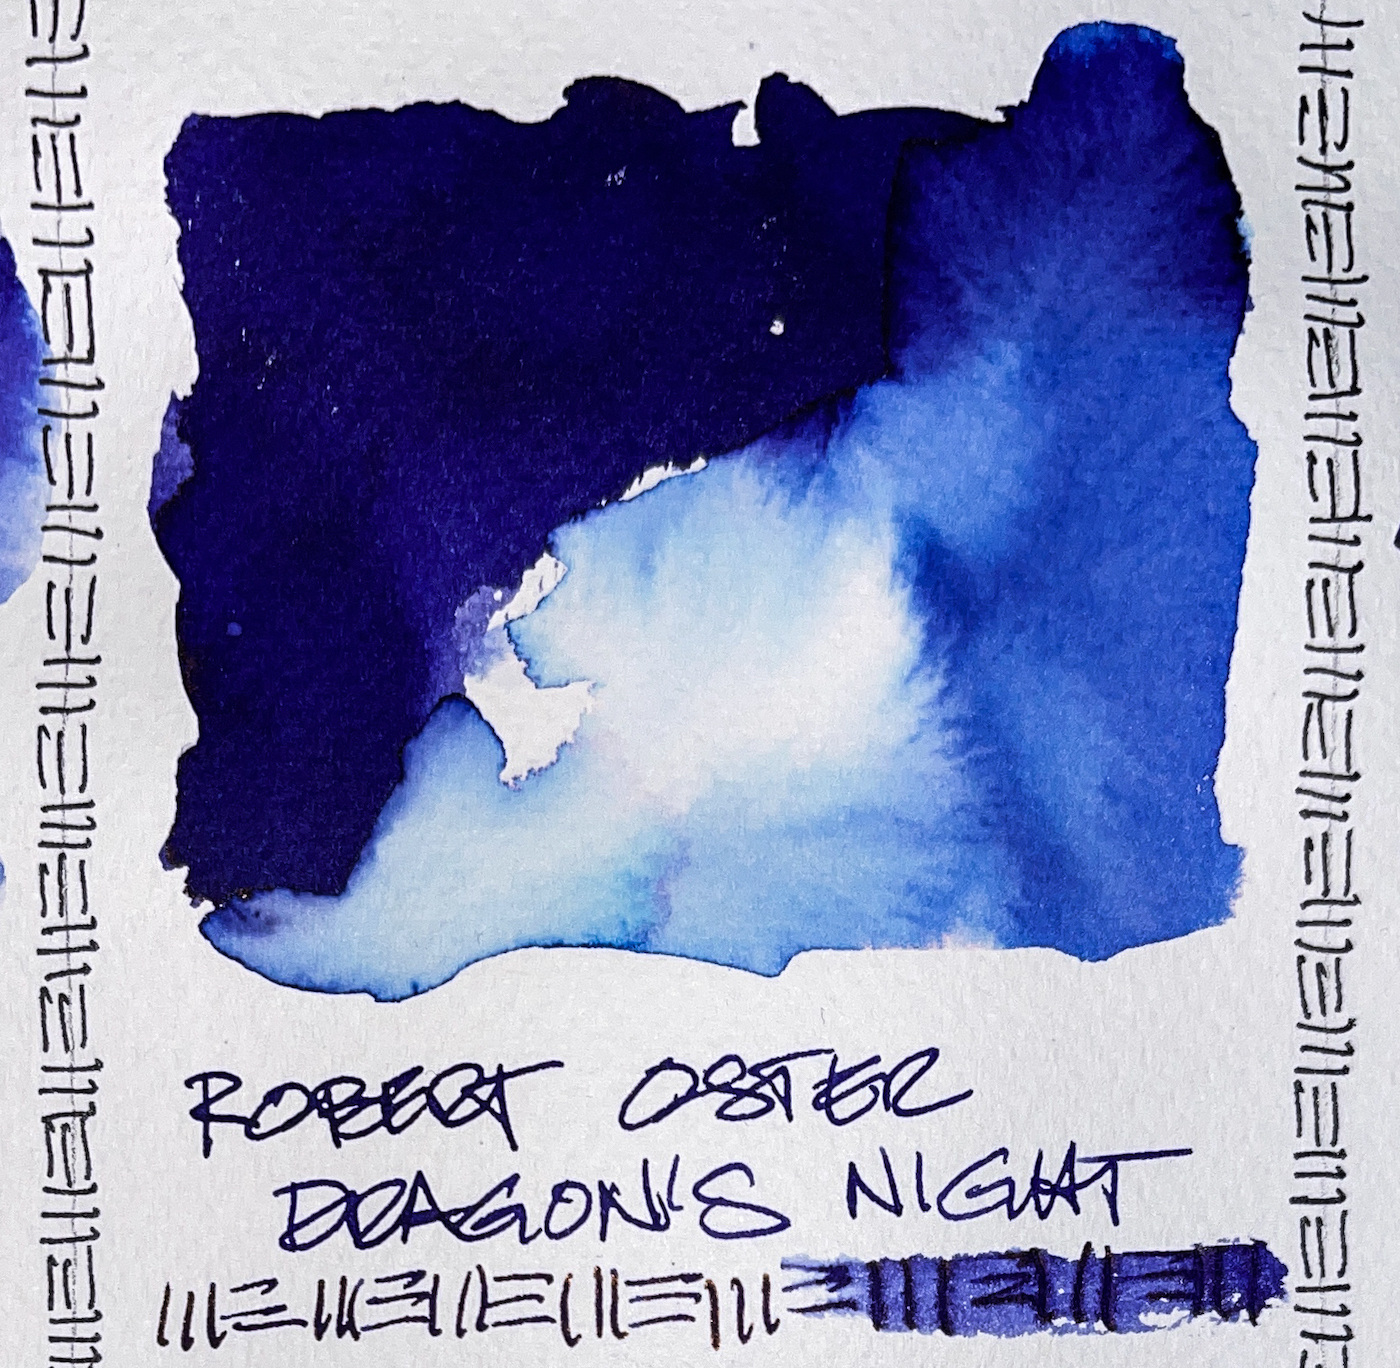 ROBERT OSTER
DRAGON'S NIGHT